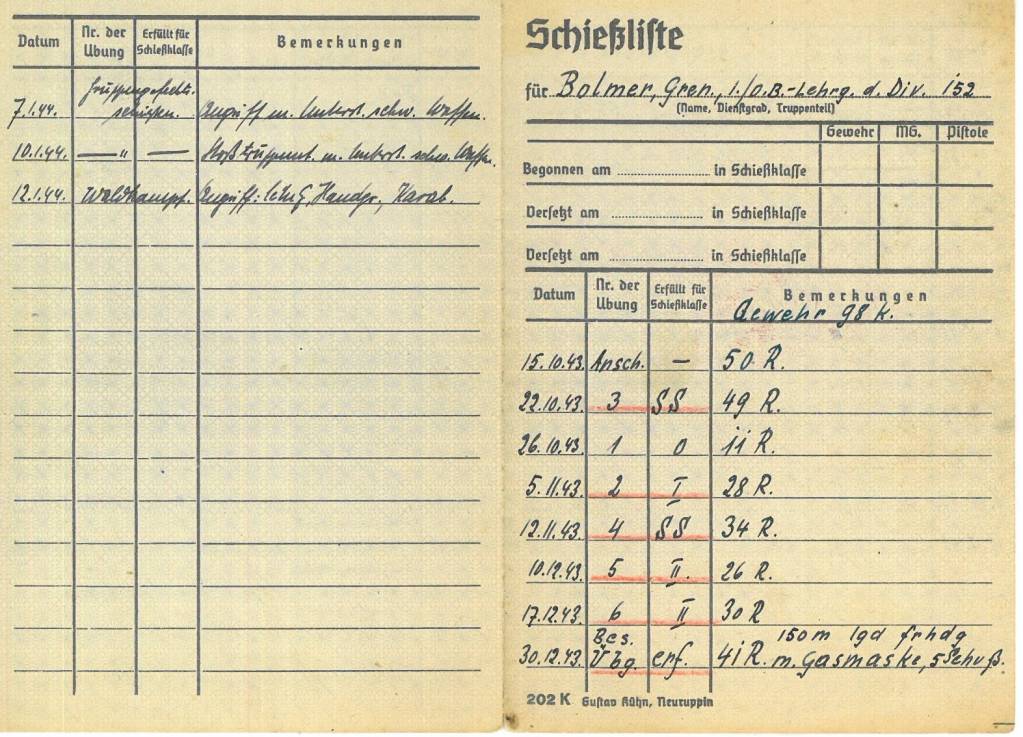 Datum Nr. der Übung Erfüllt für Schießklasse Bemerkungen
Gruppengefechts-
7.1.44. schießen. Angriff m. Unterst. schw. Waffen.
10.1.44. — " — Stoßtruppunt. m. Unterst. schw. Waffen.
12.1.44. Waldkampf. Angriff: Handgr., Karab.
Schießliste
für Bolmer, Gren., 1./O.B.-Lehrg. d. Div. 152
(Name, Dienstgrad, Truppenteil)
Gewehr MG. Pistole
Begonnen am ........................ in Schießklasse
Versetzt am ........................ in Schießklasse
Versetzt am ........................ in Schießklasse
Datum Nr. der Übung Erfüllt für Schießklasse Bemerkungen
Gewehr 98 K.
15.10.43. Ansch. — 50 R.
22.10.43. 3 SS 49 R.
26.10.43. 1 0 11 R.
5.11.43. 2 I 28 R.
12.11.43. 4 SS 34 R.
10.12.43. 5 II. 26 R.
17.12.43. 6 II 30 R
Bes. 150m lgd frhdg
30.12.43. Übg. erf. 41 R. m. Gasmaske, 5 Schuß.
202 K Gustav Kühn, Neuruppin